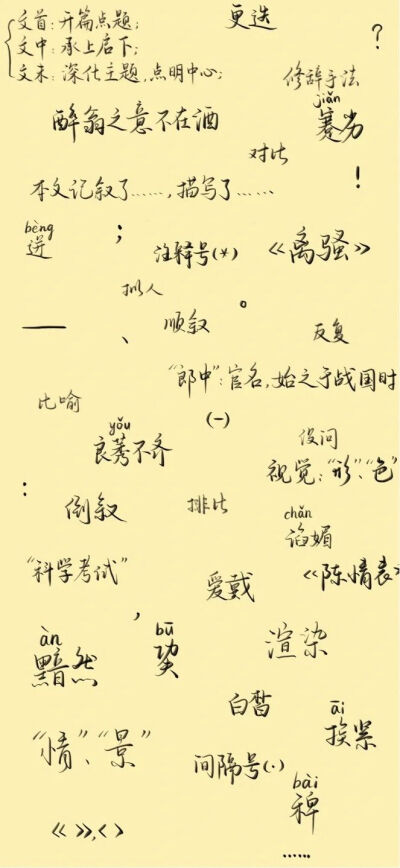 文首:开篇点题;
文中:承上启下;
文末:深化主题,点明中心;
更迭
?
修辞手法
醉翁之意不在酒
jiǎn
蹇劣
对比
本文记叙了……,描写了……
!
bèng
迸
;
注释号(*)
《离骚》
拟人
。
—
、
顺叙
反复
“郎中”:官名,始之于战国时
比喻
(一)
yǒu
良莠不齐
设问
视觉:“形”、“色”
:
倒叙
排比
chǎn
谄媚
“科学考试”
爱戴
《陈情表》
,
àn
黯然
bū
巭
渲染
白皙
āi
挨紧
“情”、“景”
间隔号(·)
bài
稗
《 》,〈 〉
……